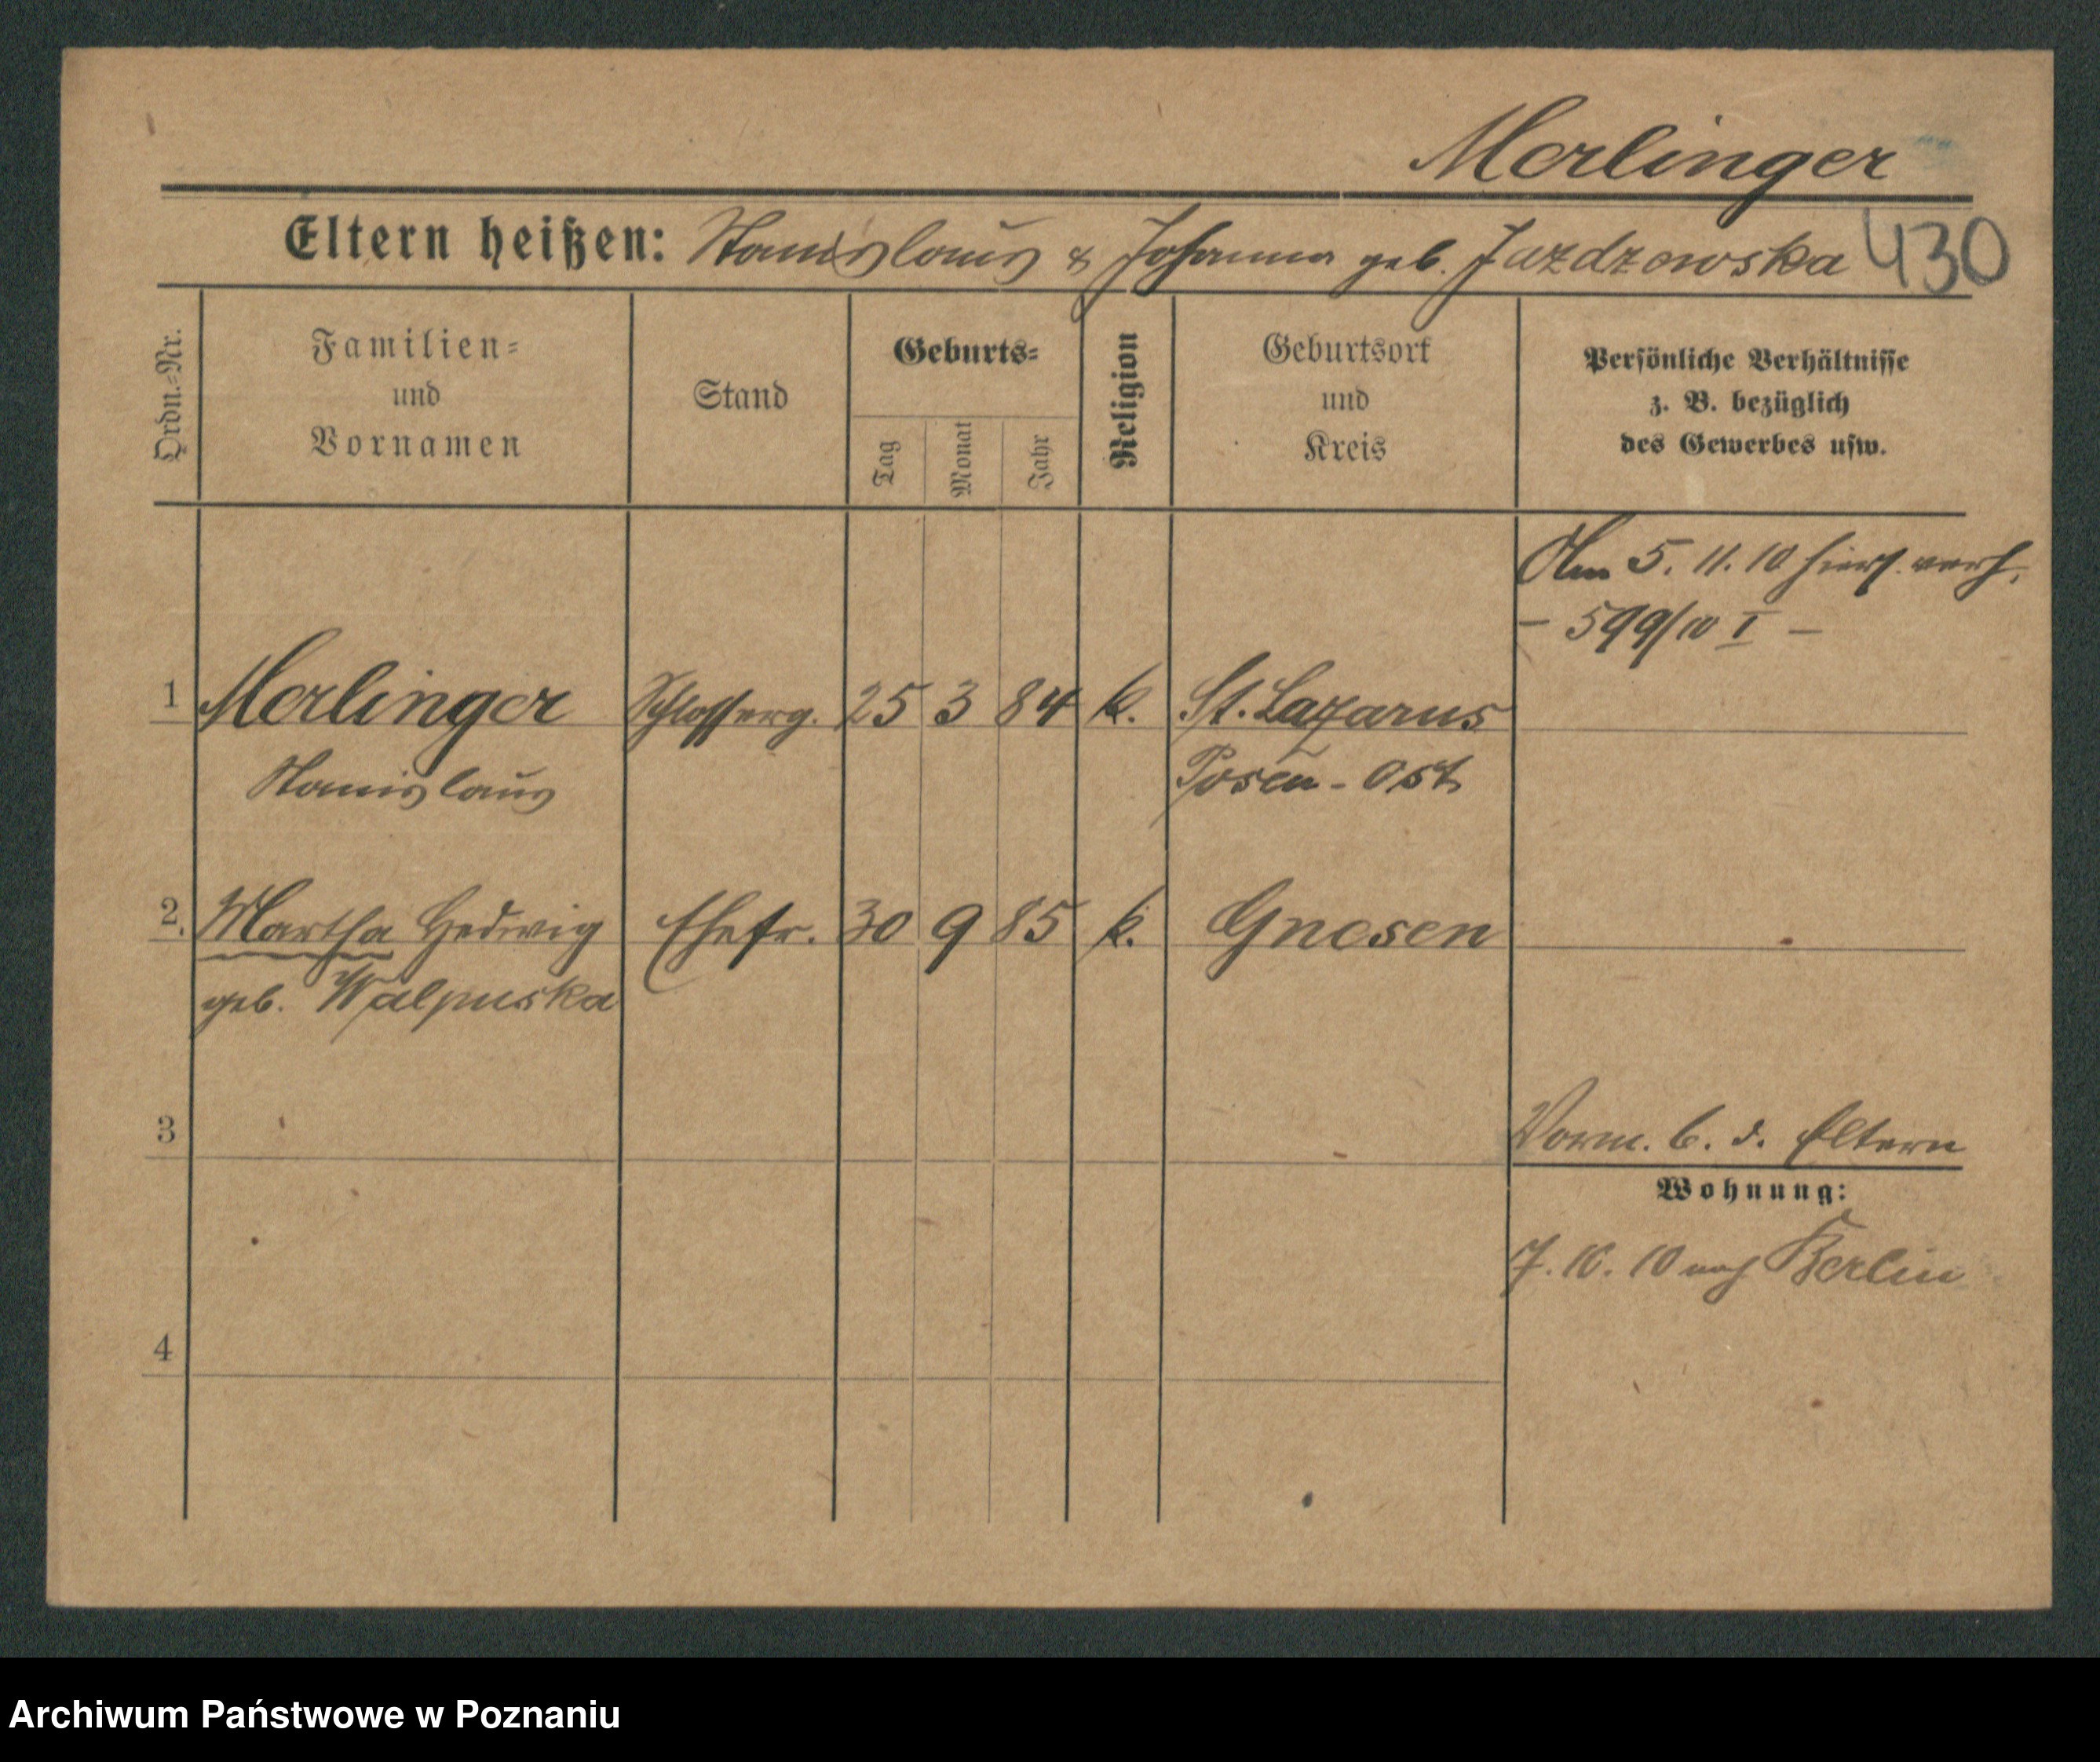 Merlinger
Eltern heißen: Stanislaus & Johanna geb. Jazdzewska 430
Ordn.-Nr.
Familien-
und
Vornamen
Stand
Geburts-
Tag
Monat
Jahr
Religion
Geburtsort
und
Kreis
Persönliche Verhältnisse
z. B. bezüglich
des Gewerbes usw.
Am 5. 11. 10 hier verh.
– 599/10 I –
1 Merlinger Schlosserg. 25 3 84 k. St. Lazarus
Stanislaus Posen-Ost
2. Martha Hedwig Ehefr. 30 9 85 k. Gnesen
geb. Walpuska
3
Vorm. b. d. Eltern
Wohnung:
7. 10. 10 nach Berlin
4
Archiwum Państwowe w Poznaniu